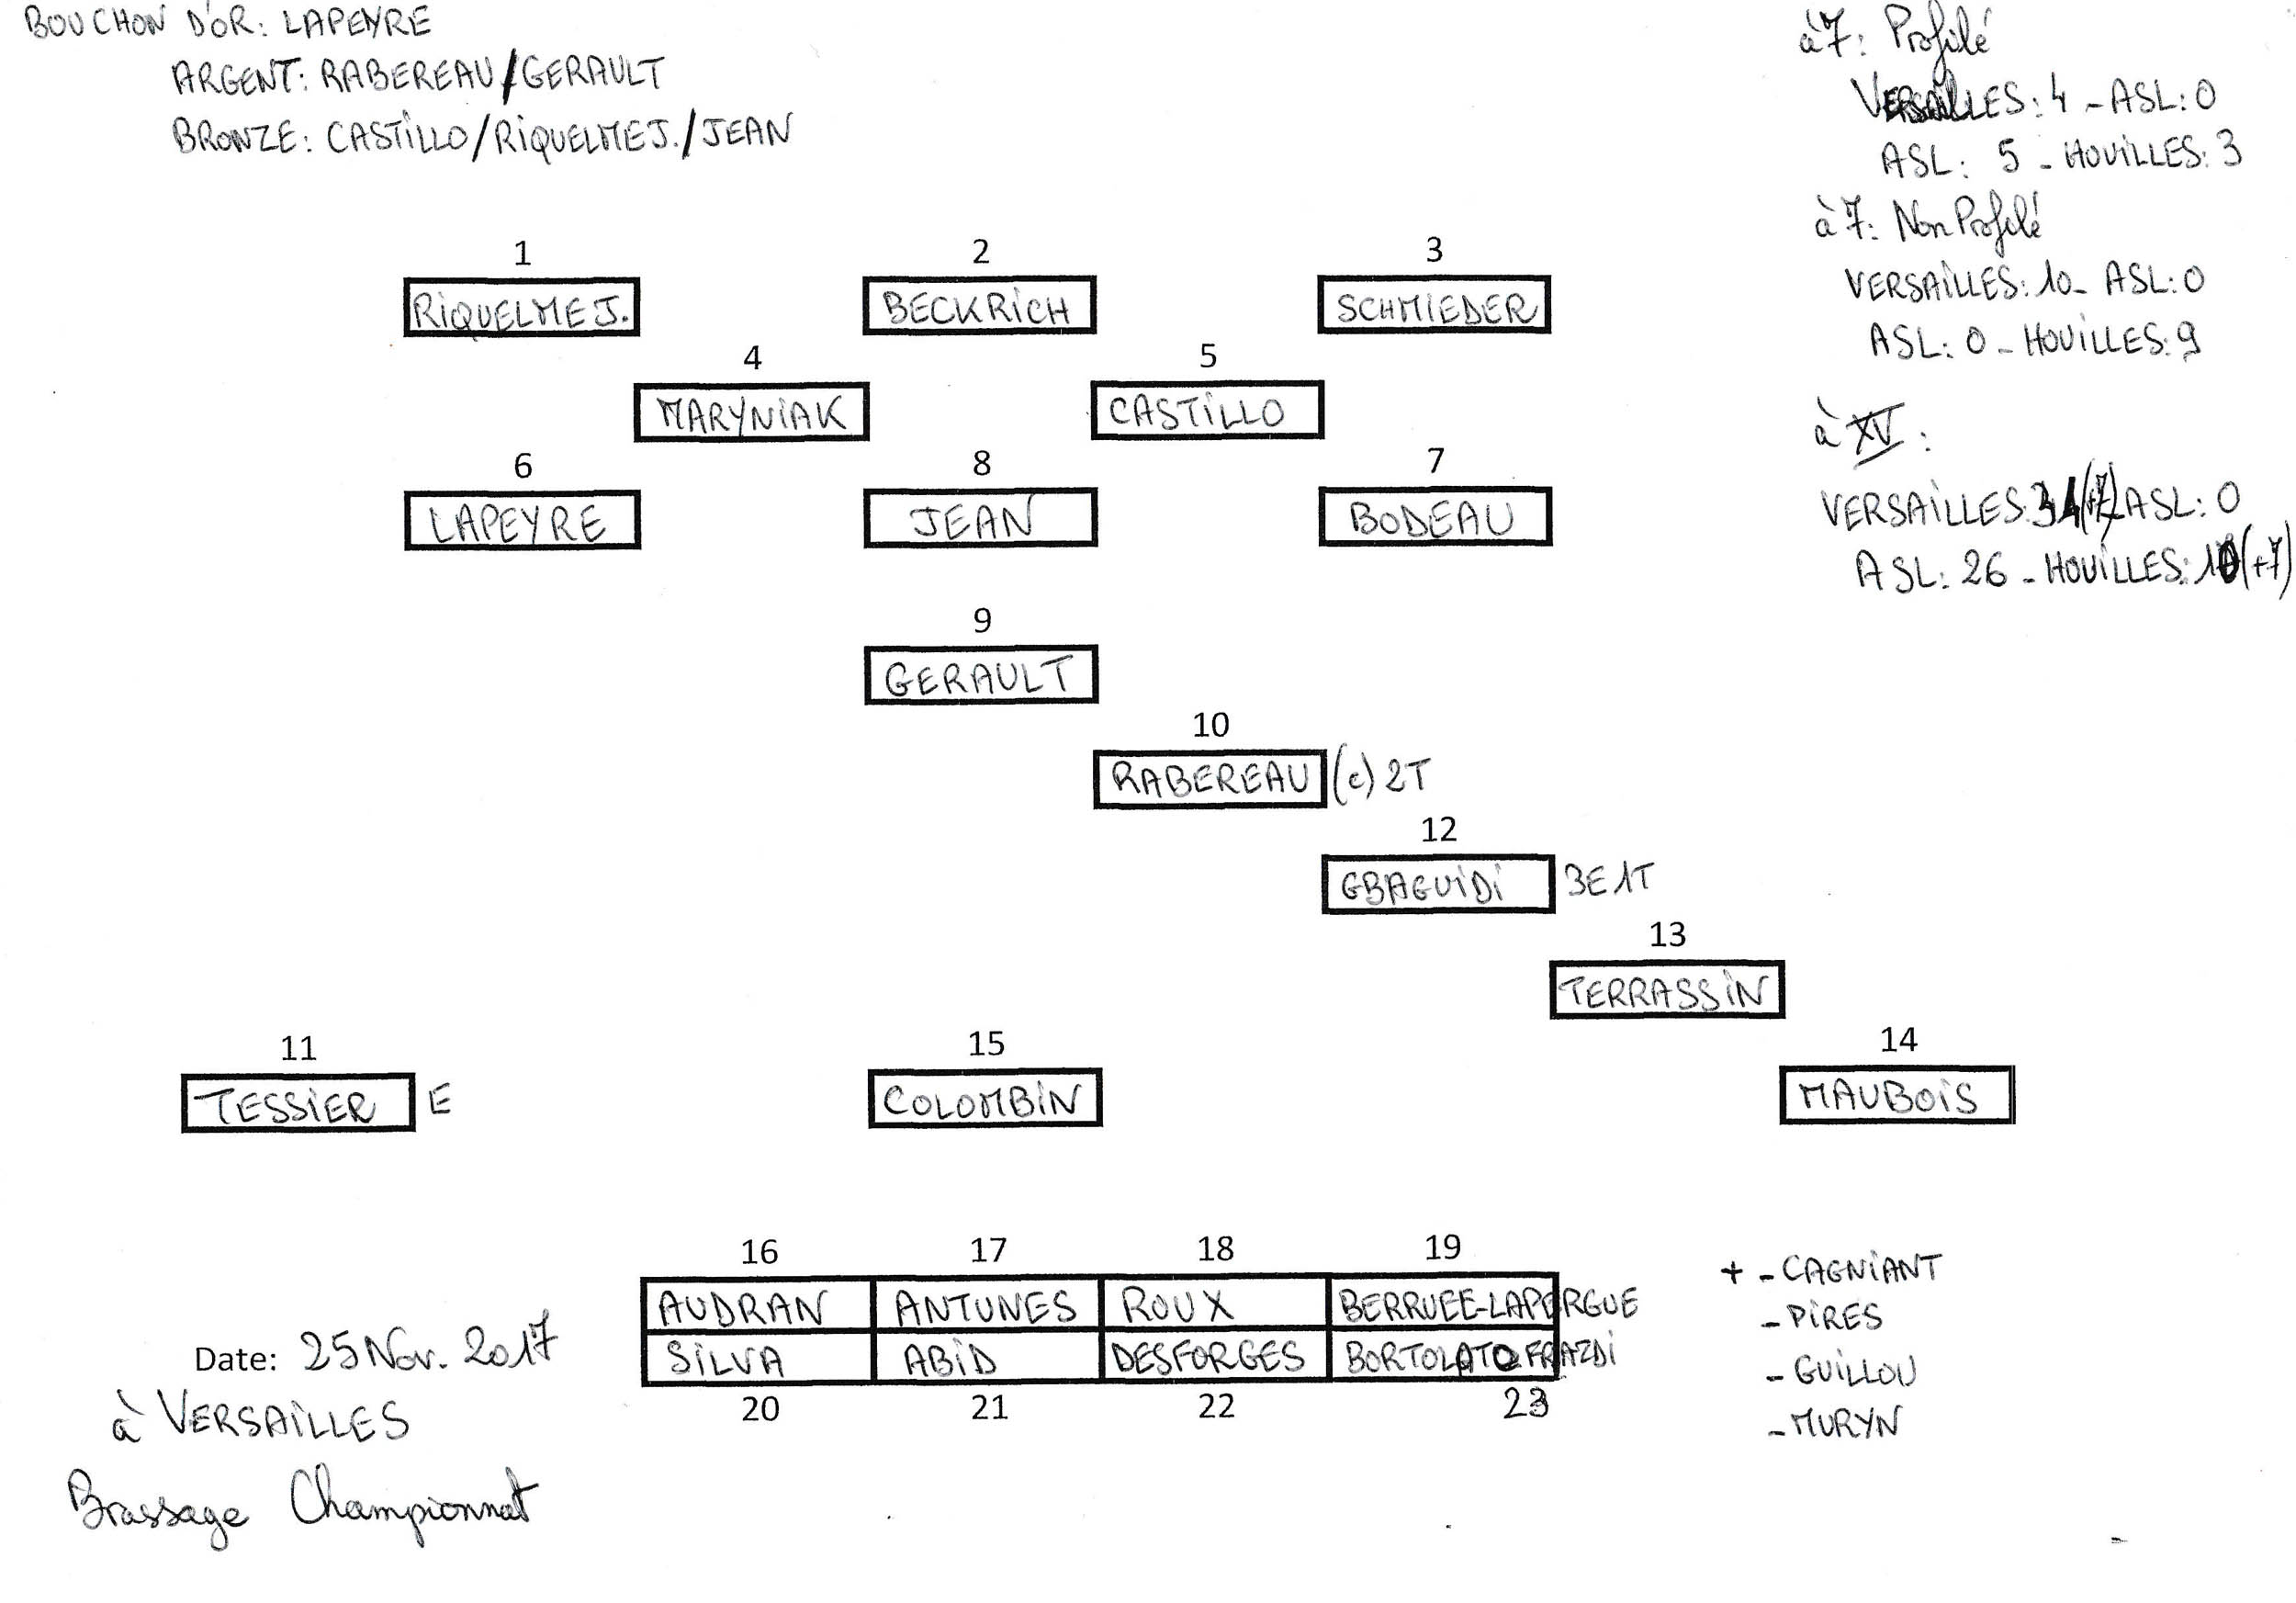 BOUCHON D'OR: LAPEYRE
ARGENT: RABEREAU/GERAULT
BRONZE: CASTILLO/RIQUELME J./JEAN
à 7: Profilé
VERSAILLES: 4 - ASL: 0
ASL: 5 - HOUILLES: 3
à 7: Non Profilé
VERSAILLES: 10 - ASL: 0
ASL: 0 - HOUILLES: 9
à XV:
VERSAILLES: (+7) ASL: 0
ASL: 26 - HOUILLES: 10(+7)
1 2 3
RIQUELME J. BECKRICH SCHMIEDER
4 5
MARYNIAK CASTILLO
6 8 7
LAPEYRE JEAN BODEAU
9
GERAULT
10
RABEREAU (c) 2T
12
GBAGUIDI 3E 1T
13
TERRASSIN
11 15 14
TESSIER E COLOMBIN MAUBOIS
16 17 18 19
AUDRAN ANTUNES ROUX BERRUEE-LAPORGUE
SILVA ABID DESFORGES BORTOLATO
20 21 22 23
+ - CAGNIANT
- PIRES
- GUILLOU
- MURYN
Date: 25 Nov. 2017
à VERSAILLES
Brassage Championnat